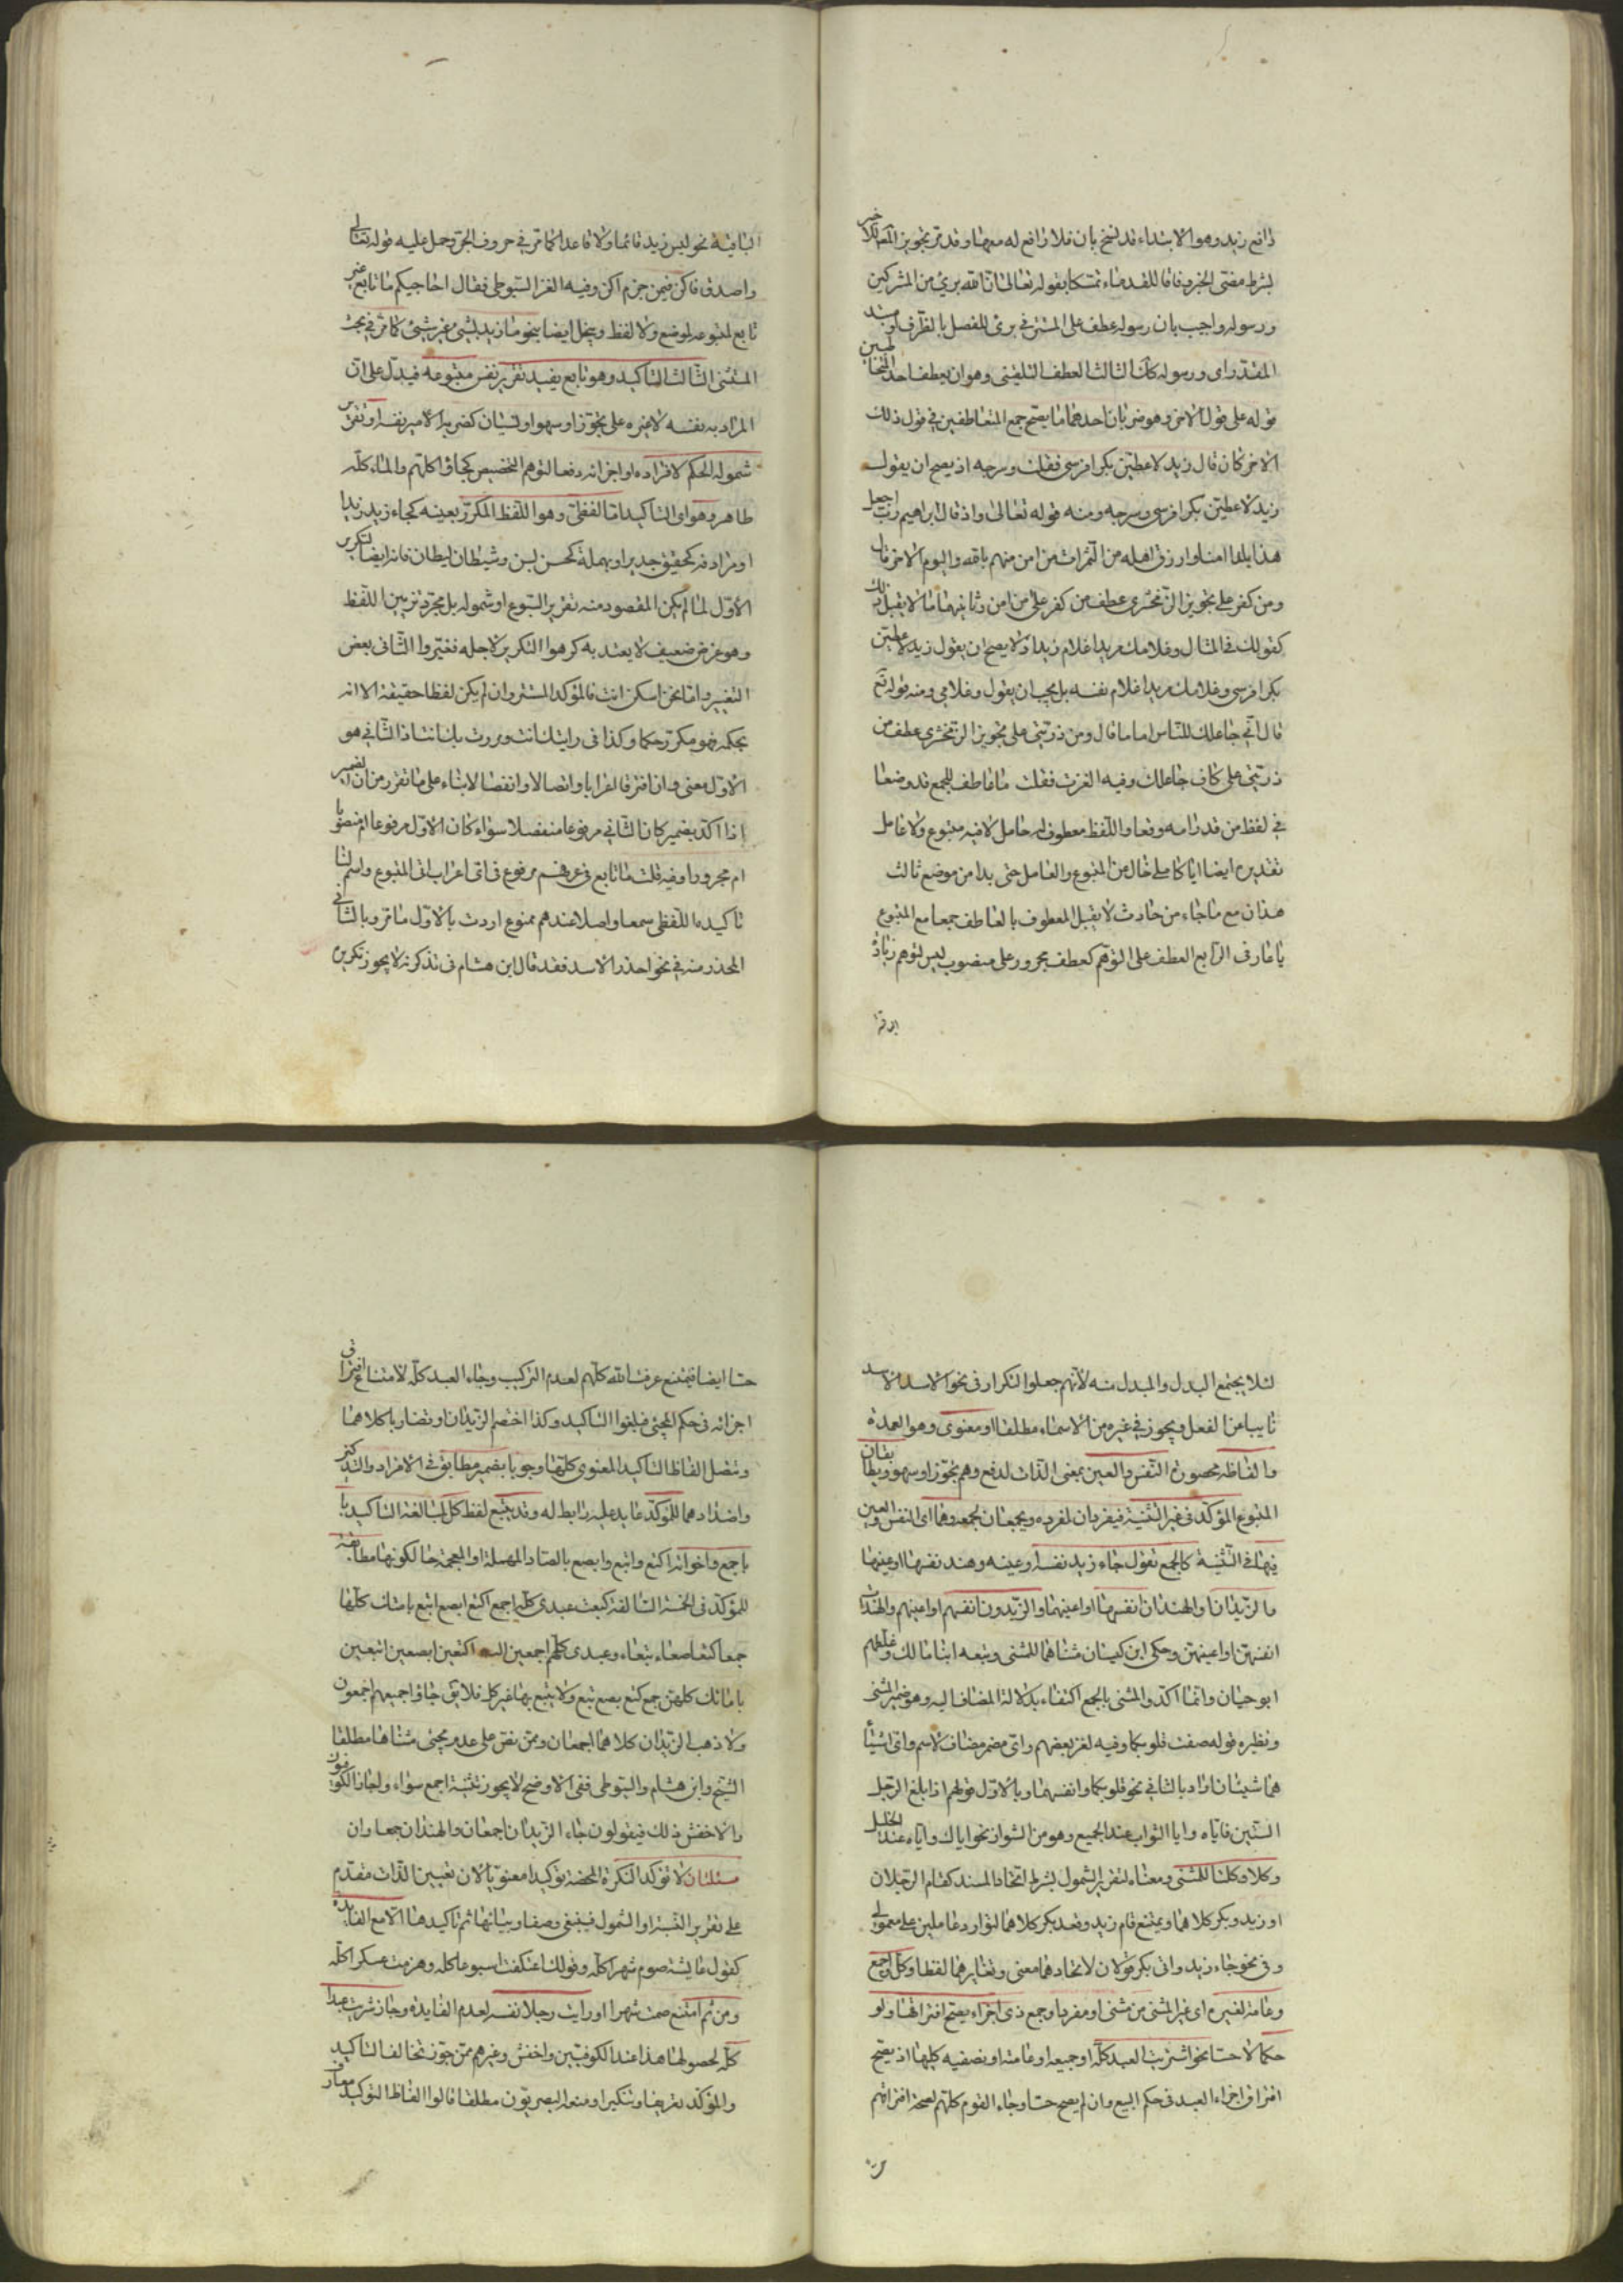 رافع زيد وهو الابتداء قد نسخ بان فلا رافع له معها وقد تر بجويز
بشرط مضى الخبر وفاقا للقدماء تمسكا بقوله تعالى ان الله برئ من المشركين
ورسوله واجيب بان رسوله عطف على المستتر في برئ للفصل بالظرف او مبتدا
المقدر اى ورسوله كذلك الثالث العطف التلقينى وهو ان يعطف احد المتخاطبين
قوله على قول الاخر وهو ضربان احدهما ما يصح جمع المتعاطفين في قول ذلك
الاخر كان قال زيد لاعطين بكرا فرسى فقلت وسرجه اذ يصح ان يقول
زيد لاعطين بكرا فرسى وسرجه ومنه قوله تعالى واذ قال ابراهيم رب اجعل
هذا بلدا امنا وارزق اهله من الثمرات من امن منهم بالله واليوم الاخر قال
ومن كفر على تجويز الزمخشرى عطف من كفر على من امن وثانيهما ما لا يقبل ذلك
كقولك في المثال وغلامك مريدا غلام زيد اذ لا يصح ان يقول زيد لاعطين
بكرا فرسى وغلامك مريدا غلام نفسه بل يجب ان يقول وغلامى ومنه قوله تع
قال انى جاعلك للناس اماما قال ومن ذريتى على تجويز الزمخشرى عطف من
ذريتى على كاف جاعلك وفيه الغزت فقلت ما عاطف للجمع قد وضعا
في لفظ من قد رامه وقعا واللفظ معطوف له حامل لا فيه متبوع ولا عامل
تقديره ايضا ايا كاملى خال من المتبوع والعامل حتى بدا من موضع ثالث
هذان مع ما جاء من حادث لا يقبل المعطوف بالعاطف جمعا مع المتبوع
يا عارف الرابع العطف على التوهم كعطف مجرور على منصوب ليس لتوهم زيادة
الباقية نحو ليس زيد قائما ولا قاعد كما مر في حروف الجر وحمل عليه قوله تعالى
واصدق واكن فيمن جزم اكن وفيه الغز السيوطى فقال احاجيكم ما تابع غير
تابع لمتبوعه لموضع ولا لفظ ويحل ايضا بنحو ما زيد بشئ غير شئ كما مر في بحث
المستثنى الثالث التاكيد وهو تابع يفيد تقرير نفس متبوعه فيدل على ان
المراد به نفسه لا غيره على تجوز او سهو او نسيان كضربه الامير نفسه او تقرير
شموله الحكم لافراده او اجزائه دفعا لتوهم التخصيص كجاؤا كلهم والماء كله
طاهر وهو اى التاكيد اما لفظى وهو اللفظ المكرر بعينه كجاء زيد زيد
او مرادفه كحقيق جدير او بمهملة كحسن بسن وشيطان ليطان فانه ايضا تكرير
الاول لما لم يكن المقصود منه تقرير المتبوع او شموله بل مجرد تزيين اللفظ
وهو غرض ضعيف لا يعتد به كرهوا التكرير لاجله فغيروا الثانى بعض
التغيير واما نحن اسكن انت فالمؤكد المستتر وان لم يكن لفظا حقيقة الا انه
بحكمه فهو مكرر حكما وكذا في رايتك انت ومررت بك انت اذ الثانى هو
الاول معنى وان افترقا اعرابا واتصالا وانفصالا بناء على ما تقرر من ان الضمير
اذا اكد بضمير كان الثانى مرفوعا منفصلا سواء كان الاول مرفوعا ام منصوبا
ام مجرورا وفيه قلت ما تابع في عرفهم مرفوع في اى اعراب اتى المتبوع واسم لنا
تاكيده اللفظى سمعا واصلا عندهم ممنوع اردت بالاول ما مر وبالثانى
المحذر منه في نحو احذر الاسد فقد قال ابن هشام في تذكرته لا يجوز تكريره
لئلا يجتمع البدل والمبدل منه لانهم جعلوا التكرار في نحو الاسد الاسد
نايبا عن الفعل ويجوز في غيره من الاسماء مطلقا او معنوى وهو العمدة
والفاظه محصورة النفس والعين بمعنى الذات لدفع وهم تجوز او سهو ويطابقان
المتبوع المؤكد في غير التثنية فيفردان لمفرده ويجمعان لجمعه وهما اى النفس والعين
فيها في التثنية كالجمع تقول جاء زيد نفسه او عينه وهند نفسها او عينها
والزيدان والهندان انفسهما او اعينهما والزيدون انفسهم او اعينهم والهندات
انفسهن او اعينهن وحكى ابن كيسان مثناهما للمثنى وتبعه ابنا مالك وغلطهم
ابو حيان وانما اكدوا المثنى بالجمع اكتفاء بدلالة المضاف اليه وهو ضمير المثنى
ونظيره قوله صغت قلوبكما وفيه لغز بعضهم واى مضمر مضاف لاسم واى اشياء
هما شيئان اراد بالثانى نحو قلوبكما وانفسهما وبالاول قولهم اذا بلغ الرجل
الستين فاياه وايا الشواب عند الجميع وهو من الشواذ نحو اياك واياه عند الخليل
وكلا وكلتا للمثنى ومعناه لتقرير الشمول بشرط اتحاد المسند كقام الرجلان
او زيد وبكر كلاهما ويمتنع قام زيد وقعد بكر كلاهما لتوارد عاملين على معمولى
وفى نحو جاء زيد واتى بكر قولان لاتحادهما معنى وتغايرهما لفظا وكل وجميع
وعامة لغيره اى غير المثنى من مثنى او مفردا وجمع ذى اجزاء يصح افتراقها ولو
حكما لا حسا نحو اشتريت العبد كله او جميعه او عامته او نصفيه كليهما اذ يصح
افتراق اجزاء العبد في حكم البيع وان لم يصح حسا وجاء القوم كلهم لصحة افتراقهم
حسا ايضا فيمتنع عرفت الله كلهم لعدم التركيب وجاء العبد كله لامتناع افتراق
اجزائه في حكم المجئ فيلغوا التاكيد وكذا اختصم الزيدان وتضاربا كلاهما
وتتصل الفاظ التاكيد المعنوى كلها وجوبا بضمير مطابق في الافراد والتذكير
واضدادهما للمؤكد عايد عليه رابط له وقد يتبع لفظ كل لمبالغة التاكيد
باجمع واخواته اكتع وابتع وابصع بالصاد المهملة او المعجمة حالكونها مطابقة
للمؤكد في الخمسة السالفة كبعت عبدى كله اجمع اكتع ابصع ابتع بامتك كلها
جمعا كتعا صعاء بتعاء وعبدى كلهم اجمعين اكتعين ابصعين ابتعين
بامائك كلهن جمع كتع بصع بتع ولا يتبع بها غير كل فلا يق جاؤا جميعهم اجمعون
ولا ذهب الزيدان كلاهما اجمعان وممن نص على عدم مجئ مثناها مطلقا
الشيخ وابن هشام والسيوطى ففى الاوضح لا يجوز تثنية اجمع سواء واجاز الكوفيون
والاخفش ذلك فيقولون جاء الزيدان اجمعان والهندان جمعاوان
مسئلتان لا تؤكد النكرة المحضة توكيدا معنويا لان تعيين الذات مقدم
على تقرير النسبة او الشمول فينبغى وصفها وبيانها ثم تاكيدها الا مع الفايدة
كقول عايشة صوم شهر كله وقولك اعتكفت اسبوعا كله وهزمت عسكرا كله
ومن ثم امتنع صمت شهرا او رايت رجلا نفسه لعدم الفايدة وجاز شريت عبدا
كله لحصولها هذا عند الكوفيين واخفش وغيرهم ممن جوز تخالف التاكيد
والمؤكد تعريفا وتنكيرا ومنعه البصريون مطلقا قالوا الفاظ التوكيد معارف